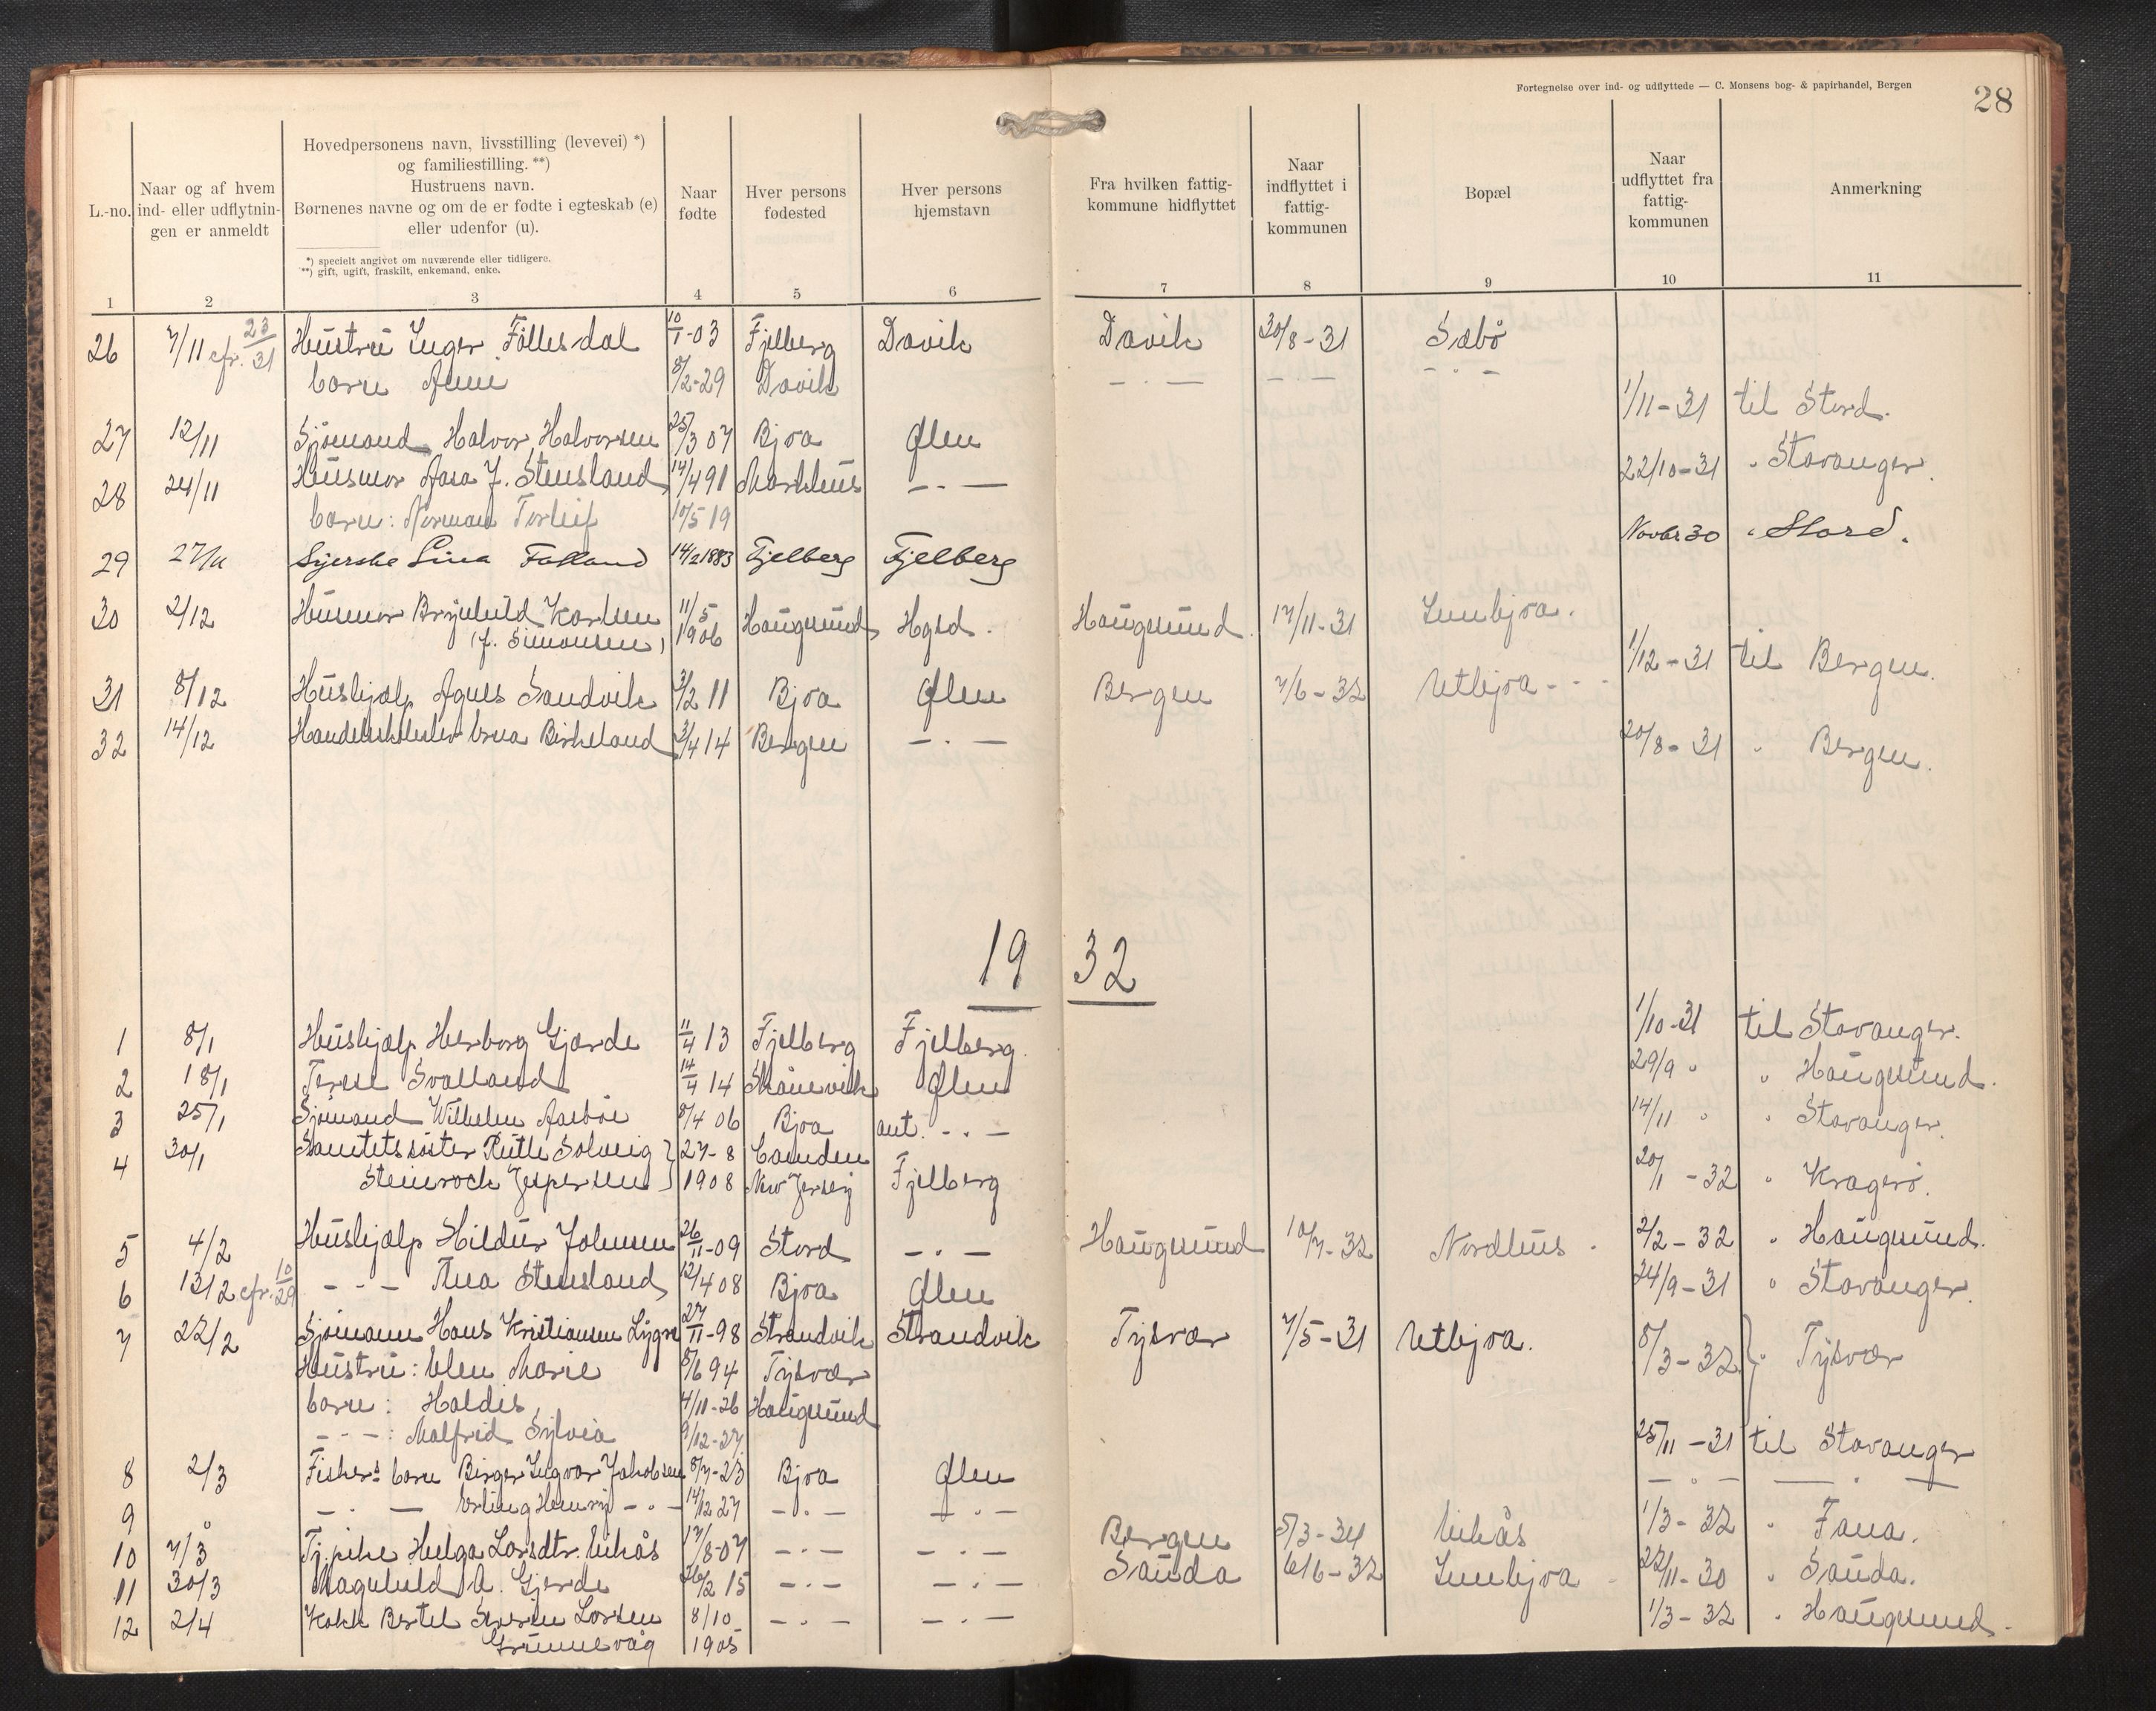 Fortegnelse over ind- og udflyttede — C. Monsens bog- & papirhandel, Bergen
28
L.-no. Naar og af hvem ind- eller udflytnin- gen er anmeldt
Hovedpersonens navn, livsstilling (levevei) *)
og familiestilling. **)
Hustruens navn.
Børnenes navne og om de er fødte i egteskab (e)
eller udenfor (u).
*) specielt angivet om nuværende eller tidligere.
**) gift, ugift, fraskilt, enkemand, enke.
Naar fødte
Hver persons fødested
Hver persons hjemstavn
Fra hvilken fattig- kommune hidflyttet
Naar indflyttet i fattig- kommunen
Bopæl
Naar udflyttet fra fattig- kommunen
Anmerkning
1 2 3 4 5 6 7 8 9 10 11
26 7/11 cfr. 23/31 Hustru Inger Föllesdal 10/1-03 Fjelberg Davik Davik 30/8-31 Sæbö
barn 8/2-29 Davik — . — — . — - " -
1/11-31 til Stord.
27 12/11 Sjömand Halvor Halvorsen 25/3 07 Bjoa Ølen
22/10-31 " Stavanger.
28 24/11 Husmor Aasa J. Stensland 14/4 91 Markhus — . —
barn: Norman Torleif 10/5 19
Novbr 30 " Stord.
29 27/11 Syerske Lina Falland 14/2 1883 Fjelberg Fjelberg
30 2/12 Husmor Brynhild Karlsen 11/5 1906 Haugesund Hgsd. Haugesund 17/11-31 Innbjoa.
(f. Simonsen)
1/12-31 til Bergen.
31 8/12 Hushjælp Agnes Sandvik 3/2 11 Bjoa Ølen Bergen 7/6-32 Utbjoa - - -
32 14/12 Handelsskoleelev Erna Birkeland 3/4 14 Bergen — . —
20/8-31 " Bergen.
1932
1/10-31 til Stavanger.
1 8/1 Hushjælp Herborg Gjærde 11/4 13 Fjelberg Fjelberg.
29/9 " " Haugesund.
2 18/1 Svalland 14/4 14 Skånevik Ølen
14/11 " " Stavanger.
3 25/1 Sjömand Wilhelm Aarböe 8/4 06 Bjoa ant. - . —
4 30/1 Sanitetssöster Ruth Solveig } 27-8 Camden
Steinrock Jespersen } 1908 New Jersey Fjelberg 20/1-32 " Kragerö.
5 4/2 Hushjælp Hildur Johnsen 26/11-09 Stord — . — Haugesund 10/7-32 Nordhus. 2/2-32 " Haugesund.
6 13/2 cfr. 10/29 - - - Anna Stensland 12/4 08 Bjoa Ølen 24/9-31 " Stavanger.
7 22/2 Sjömann Hans Kristiansen Lygre 27/11-98 Strandvik Strandvik Tysvær 7/5-31 Utbjoa. 8/3-32 } " Tysvær
Hustru: Elen Marie 8/6 94 Tysvær
barn: Haldis 4/11-26 Haugesund
- - - : Malfrid Sylvia 9/12-27
25/11-31 til Stavanger
8 2/3 Fiskers barn Birger Ingvar Jakobsen 8/7-23 Bjoa Ølen — " — — . —
9 " — . — Erling Henry - . - 14/12 27 — . — — . —
1/3-32 " Fana.
10 7/3 Tj.pike Helga Larsdtr. Eikås 17/8-07 — . — — . — Bergen 5/3-34 Eikås
11 30/3 Magnhild A. Gjerde 26/2 15 — . — — . — Sauda 6/6-32 Innbjoa 22/11-30 " Sauda.
12 2/4 Kokk Bertel Larsen 8/10 — . — — . — 1/3-32 " Haugesund.
Grunnevåg 1905